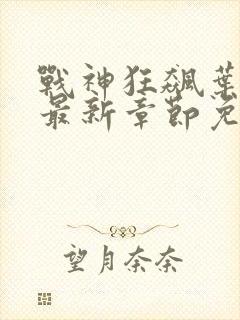 戰神狂飆葉
最新章節免
望月奈奈